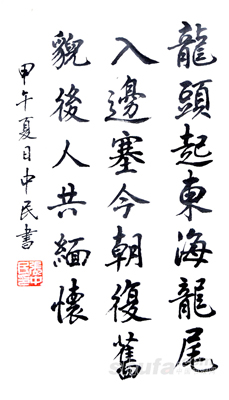 龍頭起東海龍尾
入邊塞今朝復舊
貌後人共緬懷
甲午夏日中民書